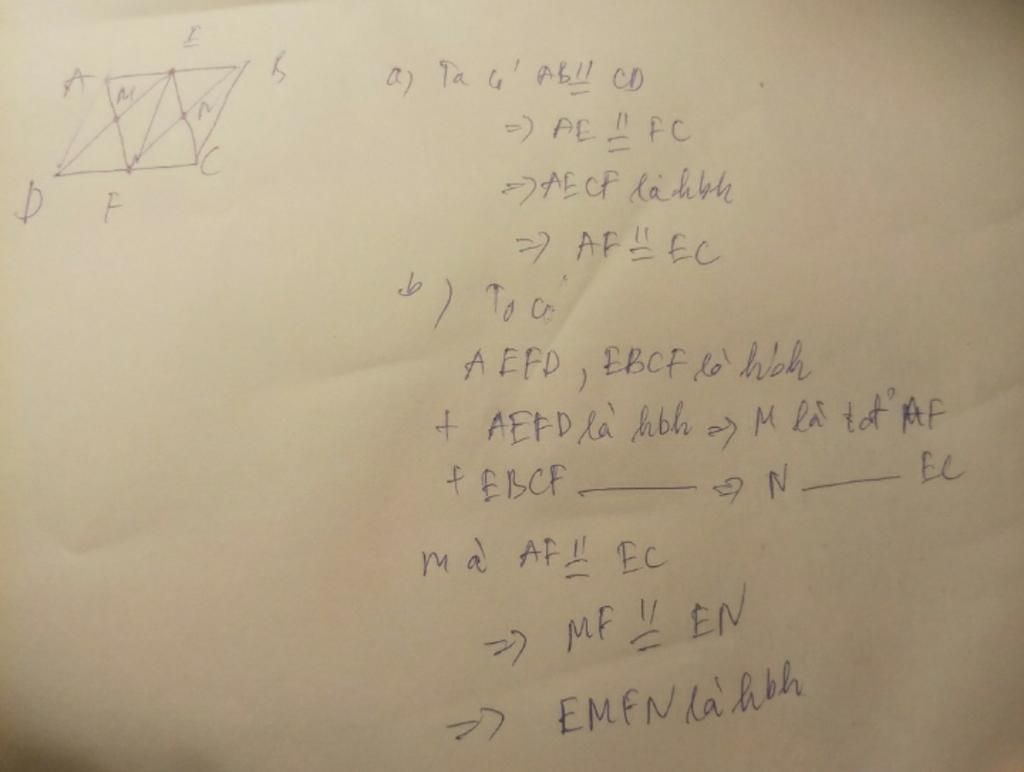 E
A B
M N
D F C
a) Ta có AB // = CD
=> AE // = FC
=> AECF là hbh
=> AF // = EC
b) Ta có
AEFD, EBCF là hbh
+ AEFD là hbh => M là tđ AF
+ EBCF ——— => N ——— EC
mà AF // = EC
=> MF // = EN
=> EMFN là hbh